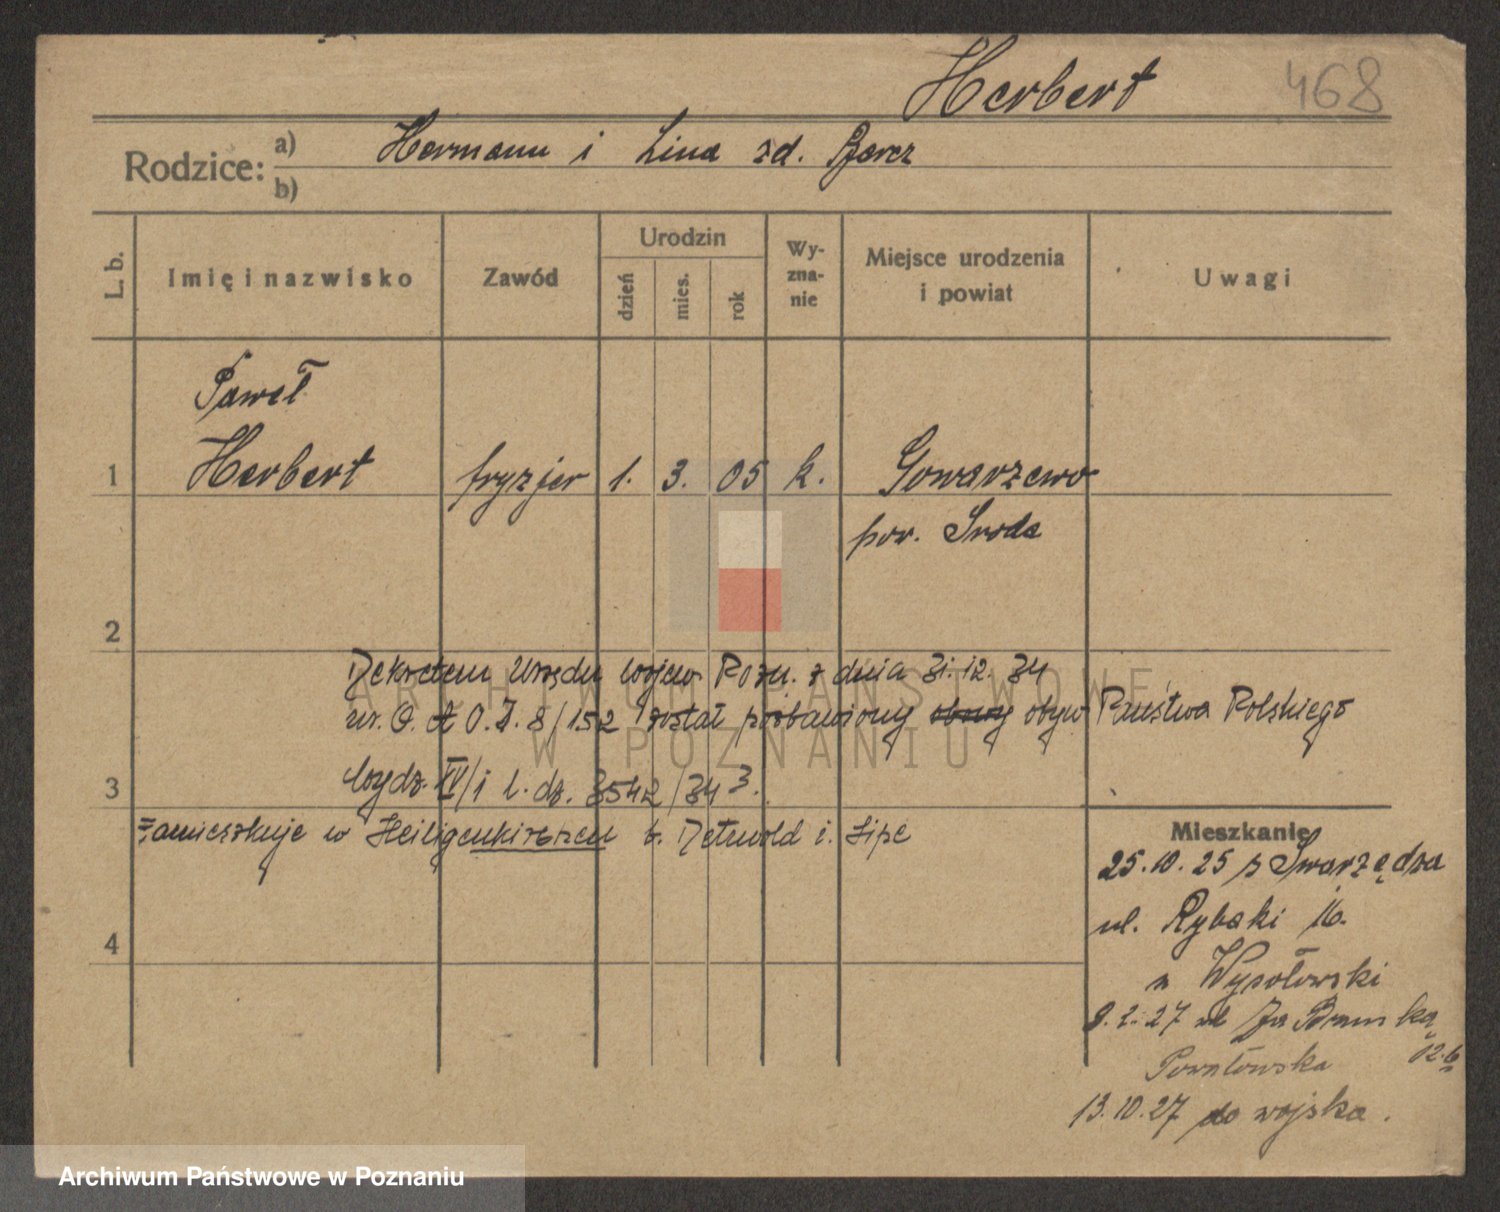 Herbert 468
Rodzice: a) Hermann i Lina zd.
b)
L. b. Imię i nazwisko Zawód Urodzin dzień mies. rok Wy-zna-nie Miejsce urodzenia i powiat Uwagi
Paweł
1 Herbert fryzjer 1. 3. 05 k. Gowarzewo
pow. Sroda
2
Dekretem Urzędu Wojew. Pozn. z dnia 31.12.34
nr. O. A O. I. 8/152 został pozbawiony obywy obyw Państwa Polskiego
3 Wydz. IV/1 l. dz. 3542/34 3.
zamieszkuje w Heiligenkirchen b. Detmold i. Lipe
Mieszkanie
25.10.25 z Swarzędza
ul. Rybaki 16.
4
u Wysołowski
9.2.27 ul Za Bramką
12.b
Powałowska
13.10.27 do wojska.
ARCHIWUM PAŃSTWOWE
W POZNANIU
Archiwum Państwowe w Poznaniu